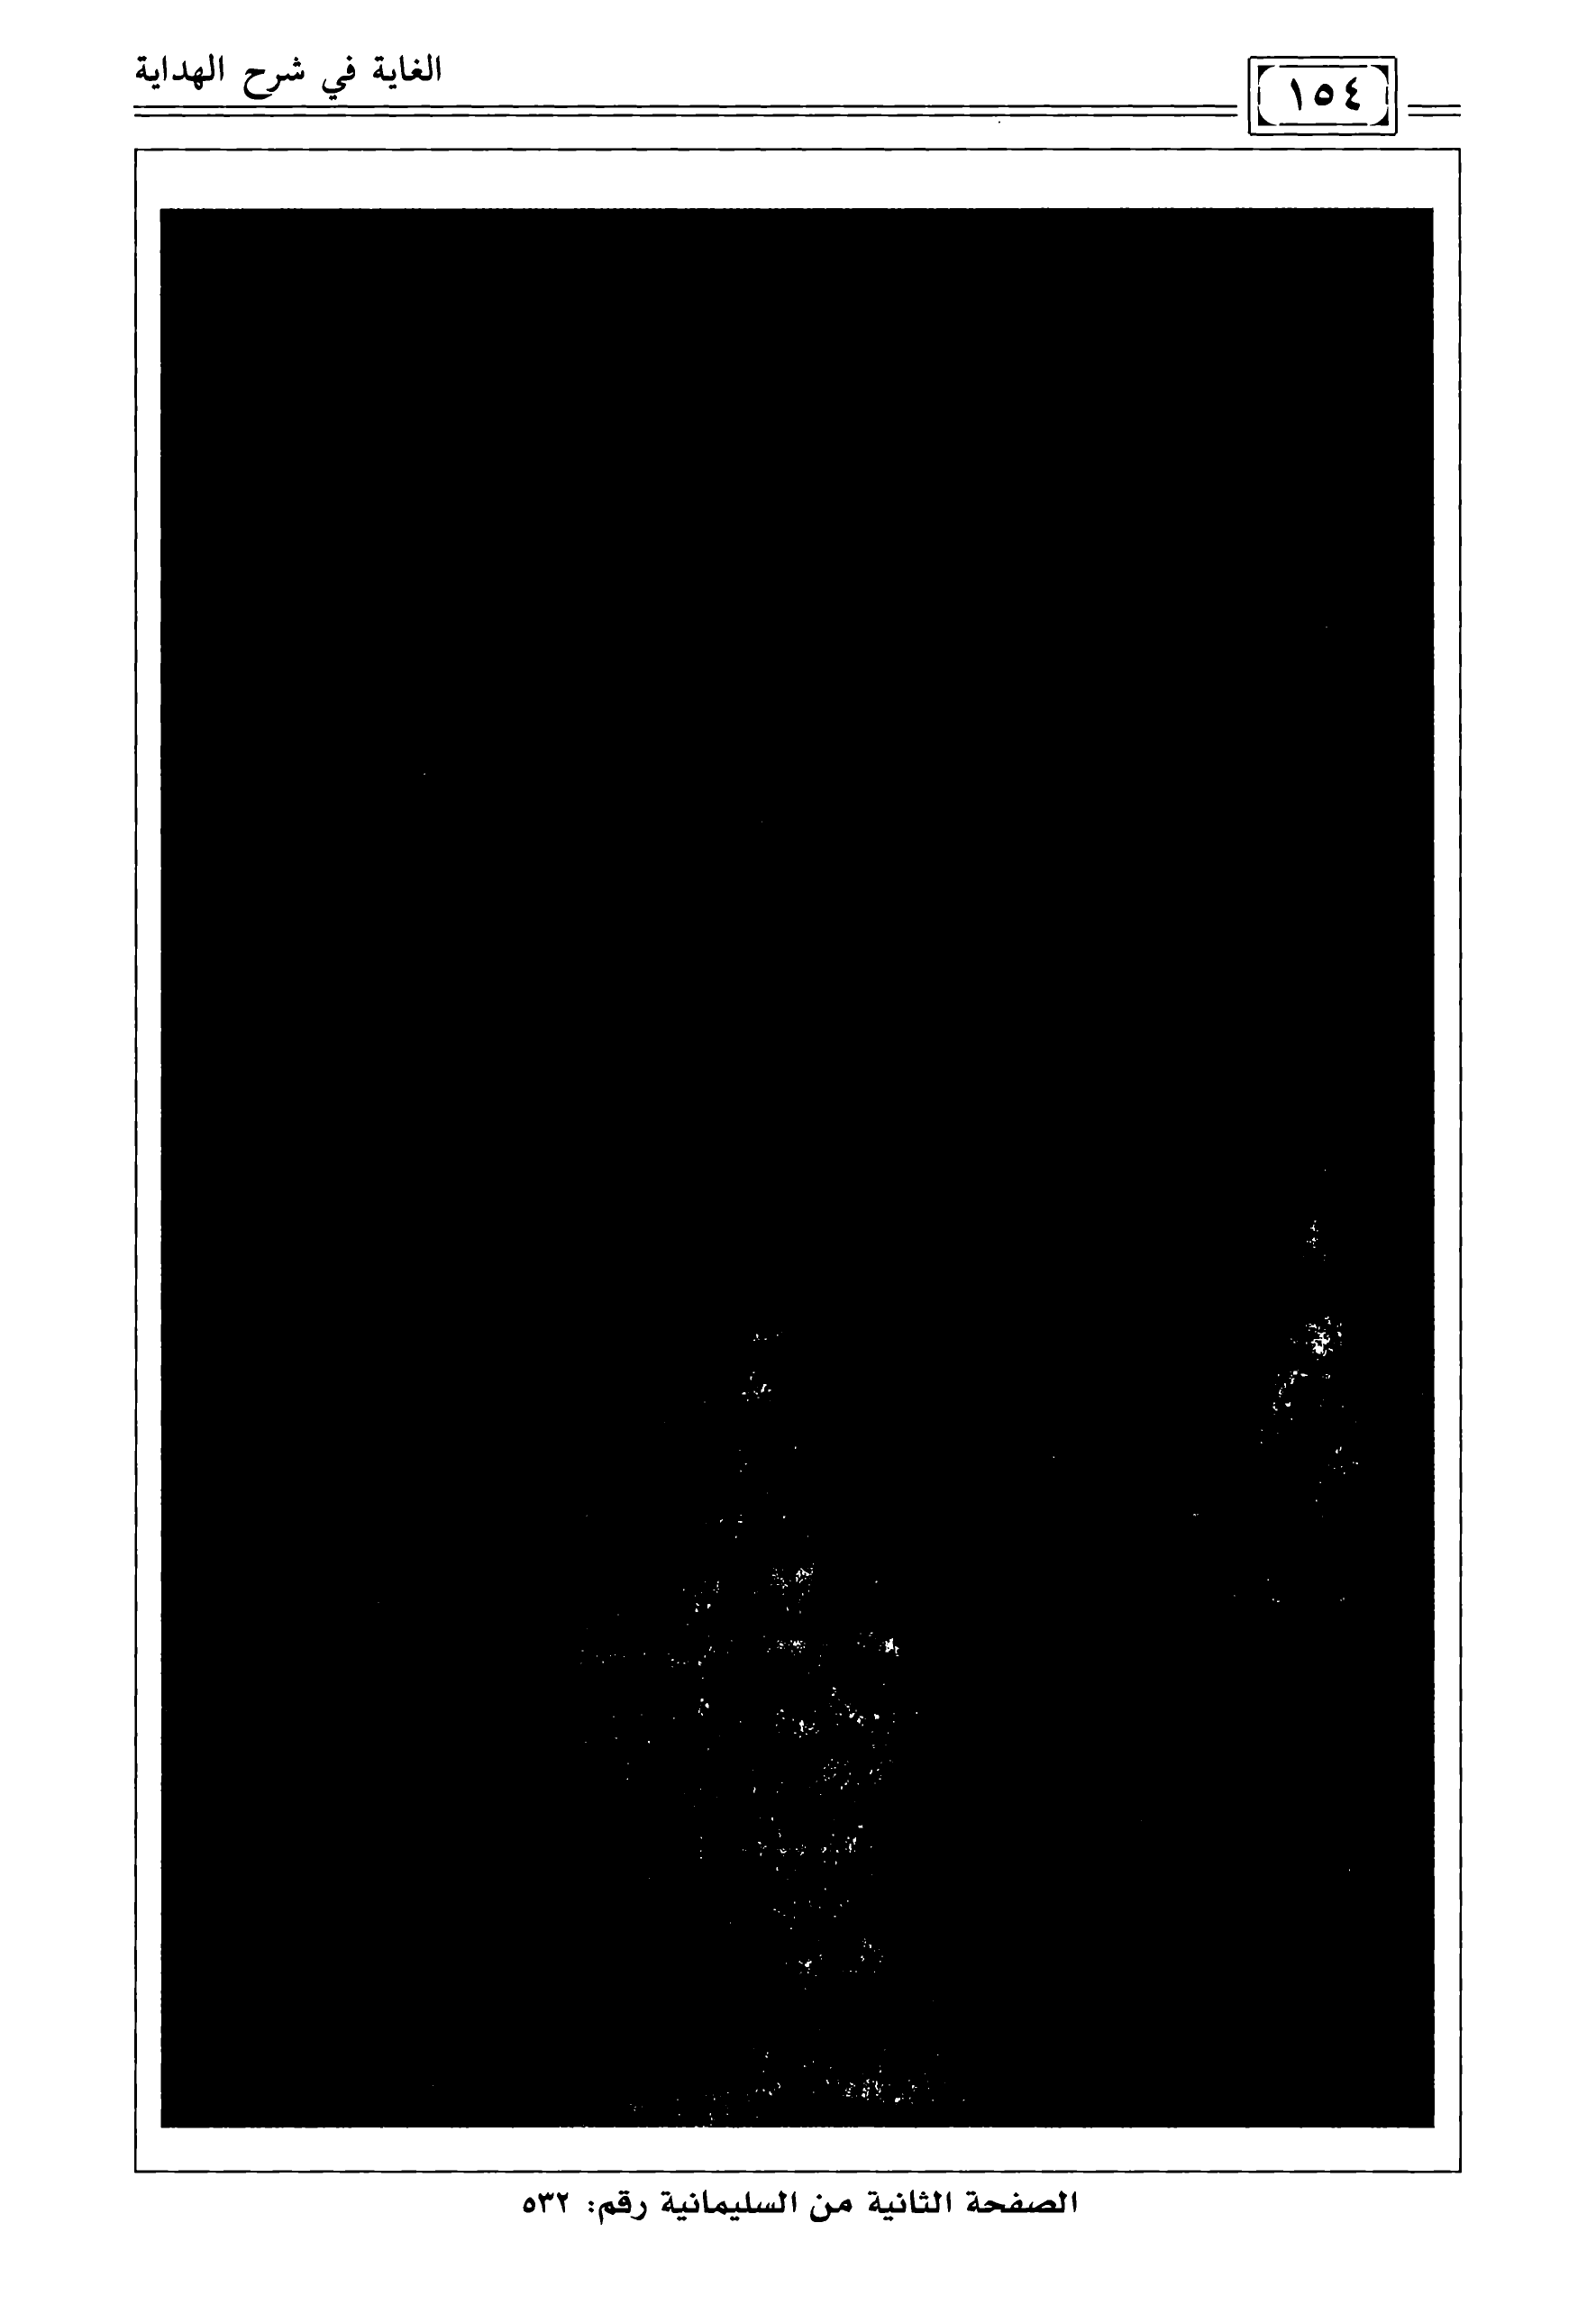 الغاية في شرح الهداية
١٥٤
الصفحة الثانية من السليمانية رقم: ٥٣٢